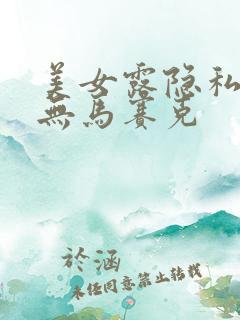 美女露隐私
無馬賽克
於涵
未经同意禁止转载